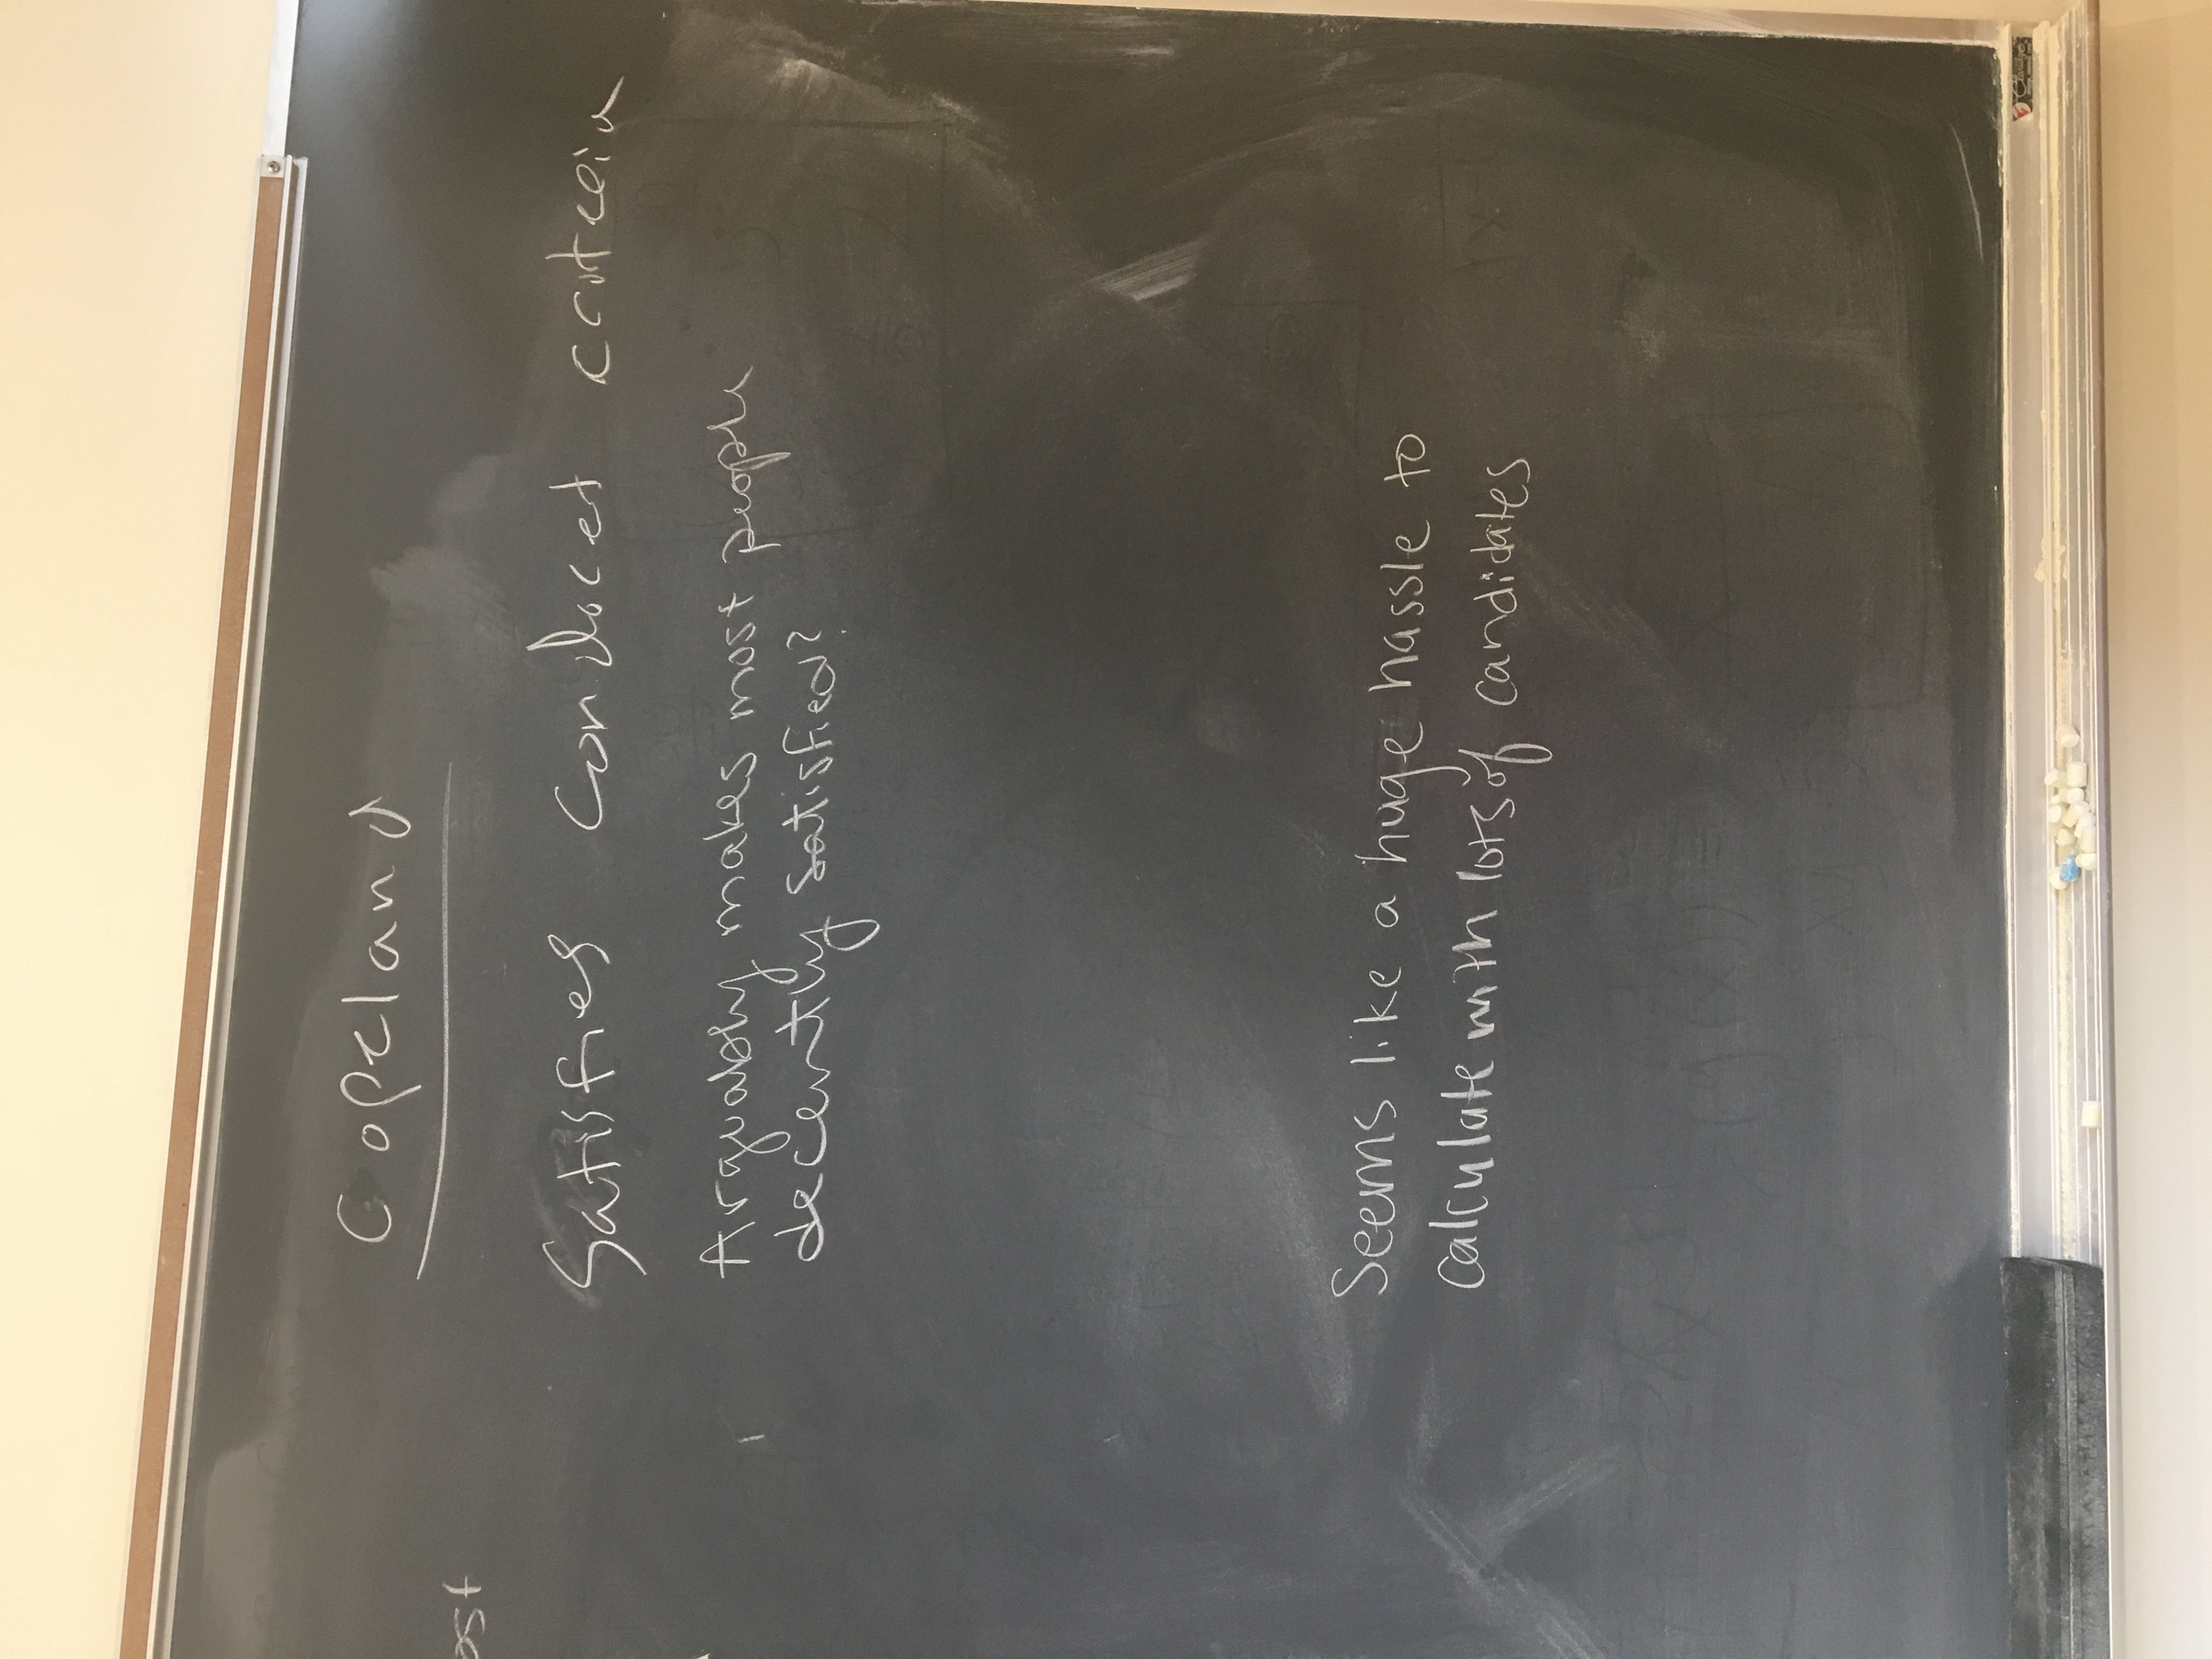 Copeland
Satisfies Condocet criteria
Arguably makes most people
decently satisfied?
Seems like a huge hassle to
calculate with lots of candidates